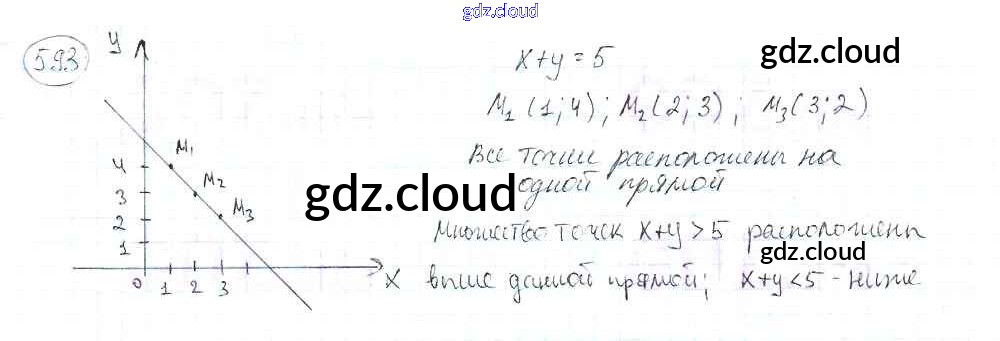 gdz.cloud
593
y
x+y=5
gdz.cloud
M₁(1;4); M₂(2;3); M₃(3;2)
M₁
Все точки расположены на
4
M₂
gdz.cloud
одной прямой
3
M₃
2
Множество точек x+y>5 расположены
1
gdz.cloud
0 1 2 3
X
выше данной прямой; x+y<5 - ниже